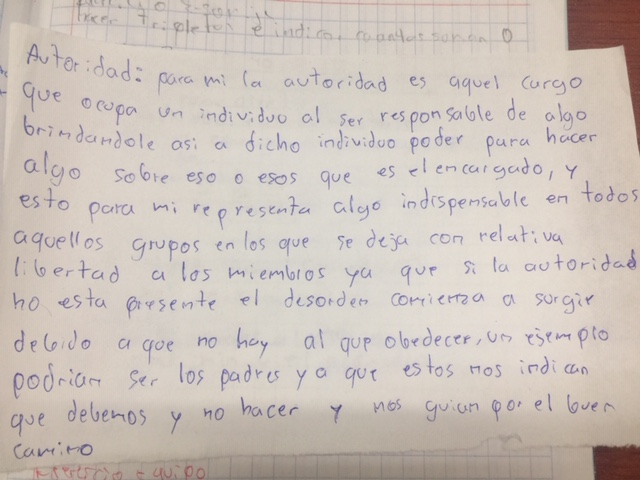 Autoridad: para mi la autoridad es aquel cargo
que ocupa un individuo al ser responsable de algo
brindandole asi a dicho individuo poder para hacer
algo sobre eso o esos que es el encargado, y
esto para mi representa algo indispensable en todos
aquellos grupos en los que se deja con relativa
libertad a los miembros ya que si la autoridad
no esta presente el desorden comienza a surgir
debido a que no hay al que obedecer, un ejemplo
podrian ser los padres ya que estos nos indican
que debemos y no hacer y nos guian por el buen
camino